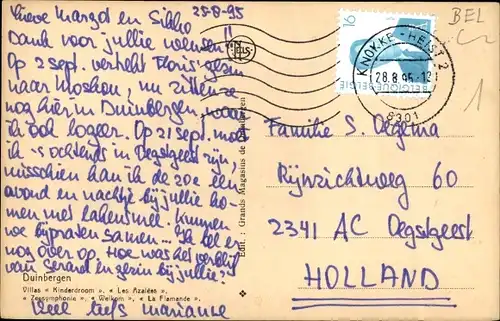 25-8-95
Lieve Margot en Sikko
Dank voor jullie wensen!!
Op 2 sept. vertrekt Floris
naar Moskou, nu zitten ze
nog hier in Duinbergen, waar
ik ook logeer. Op 21 sept. moet
ik 's ochtends in Oegstgeest zijn,
misschien kan ik de 20e een
avond en nachtje bij jullie ko-
men met lakenstel. Kunnen
we bijpraten samen... Ik bel er
nog over op. Hoe was het verblijf
van en gezin bij jullie?
Duinbergen
Villas « Kinderdroom », « Les Azalées »,
« Zeesymphonia », « Welkom », « La Flamande ».
Veel liefs Marianne
Edit.: Grands Magasins de Duinbergen
16
BELGIQUE BELGIE
KNOKKE-HEIST 2
28.8.95-12
8301
BEL
1
Familie S. Olgersma
Rijnzichtweg 60
2341 AC Oegstgeest
HOLLAND